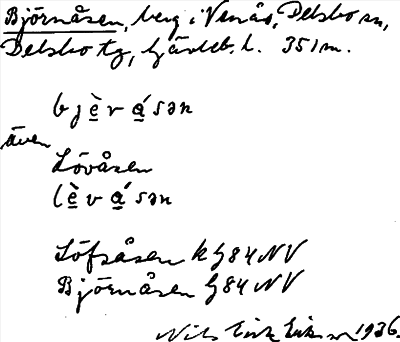 Björnåsen, berg i Venås, Delsbo sn,
Delsbo tg, Gävleb. l. 351 m.
b j è̱ r a̱ ́ s ə n
även
Lövåsen
l è̱ v a̱ ́ s ə n
Löfsåsen k G84 NV
Björnåsen G84 NV
Nils Erik Eriksson 1936.